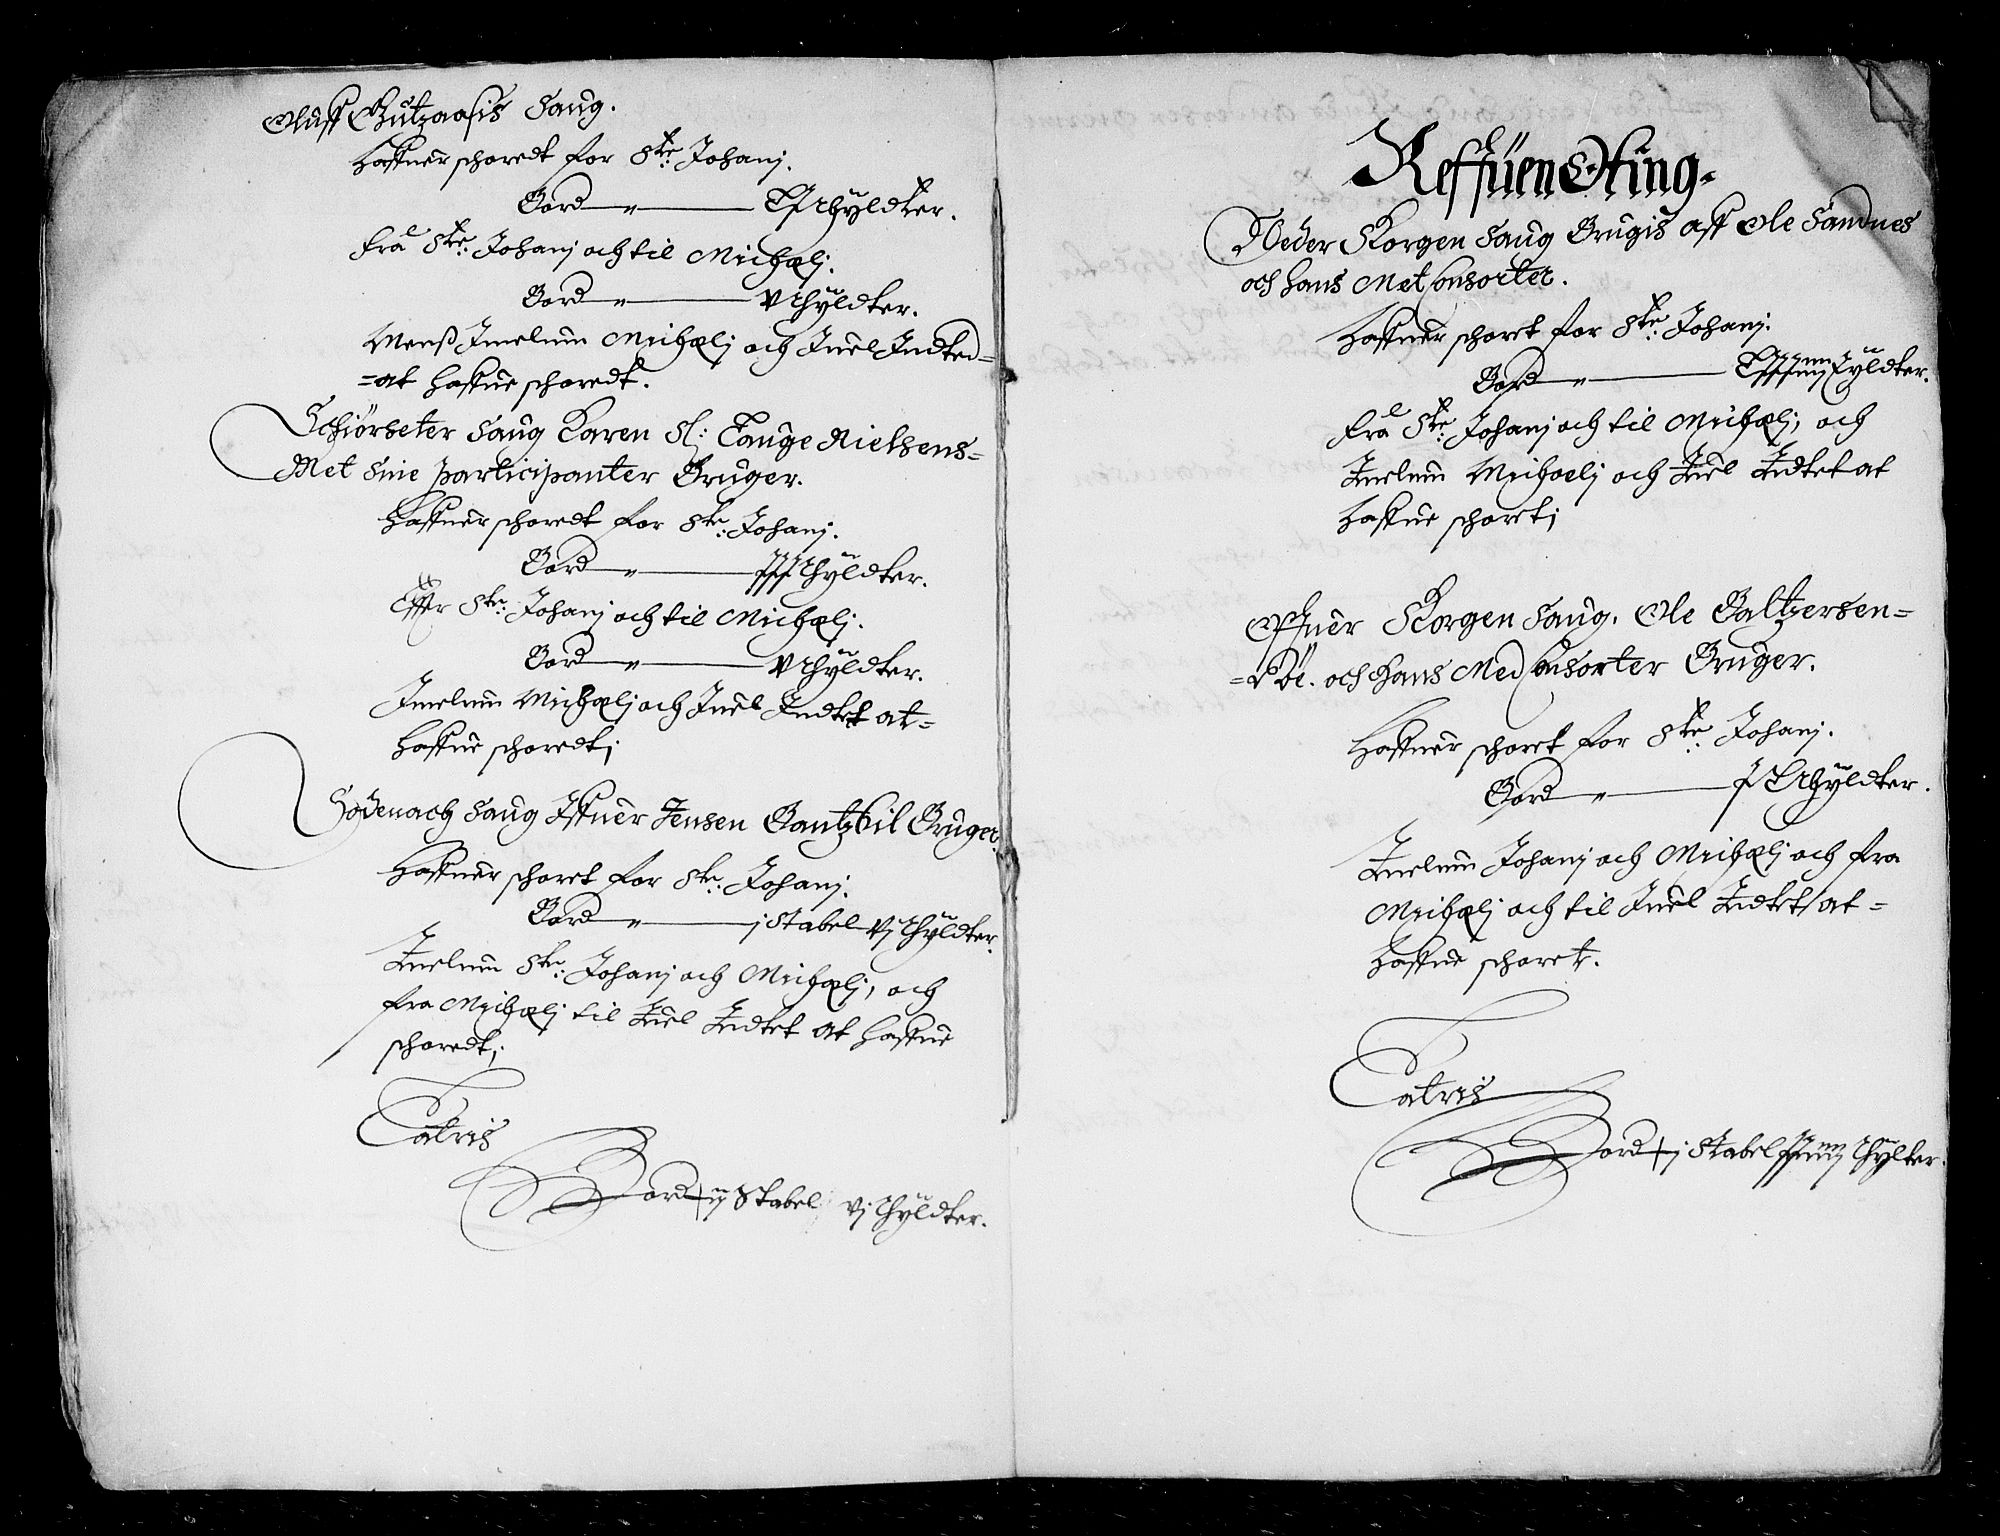 Oluff Gutzaasis Saug.
Haffuer schoredt for Ste: Johanj.
Bord " — Thyldter.
Fra Ste: Johanj och til Michælj.
Bord " — V Thyldter.
Menß Imelum Michælj och Juel Indted=
=at haffue schoredt.
Schiörseter Saug Karen Sl: Tauge Nielsens=
Met Sine participanter Bruger.
Haffuer schoredt for Ste: Johanj.
Bord " — Thyldter.
Effter Ste: Johanj och til Michælj.
Bord " — V Thyldter.
Imelum Michælj och Juel Indtet at=
haffue schoredt;
Saug Iffuer Jensen Bruger.
Haffuer schoret for Ste: Johanj.
Bord " — j Stabel Vj Thyldter.
Imelum Ste: Johanj och Michælj, och
fra Michælj til Juel Indtet at haffue
schoredt;
Latris
Bord ij Stabel Vj Thyldter.
Reffuen Ting.
Neder Korgen Saug Brugis aff Ole Sandnes
och hans Met Consorter.
Haffuer schoret for Ste: Johanj.
Bord " — Tyldter.
Fra Ste: Johanj och til Michælj, och
Imelum Michaelj och Juel Indtet at
haffue schoret;
Offuer Korgen Saug. Ole Baltzersen=
=Böe. och hans Med Consorter Bruger.
Haffuer schoret for Ste: Johanj.
Bord " — Thyldter.
Imelum Johanj och Michælj och fra
Michælj och til Juel Indtet at=
haffue schoret.
Latris
Bord j Stabel Thylter.